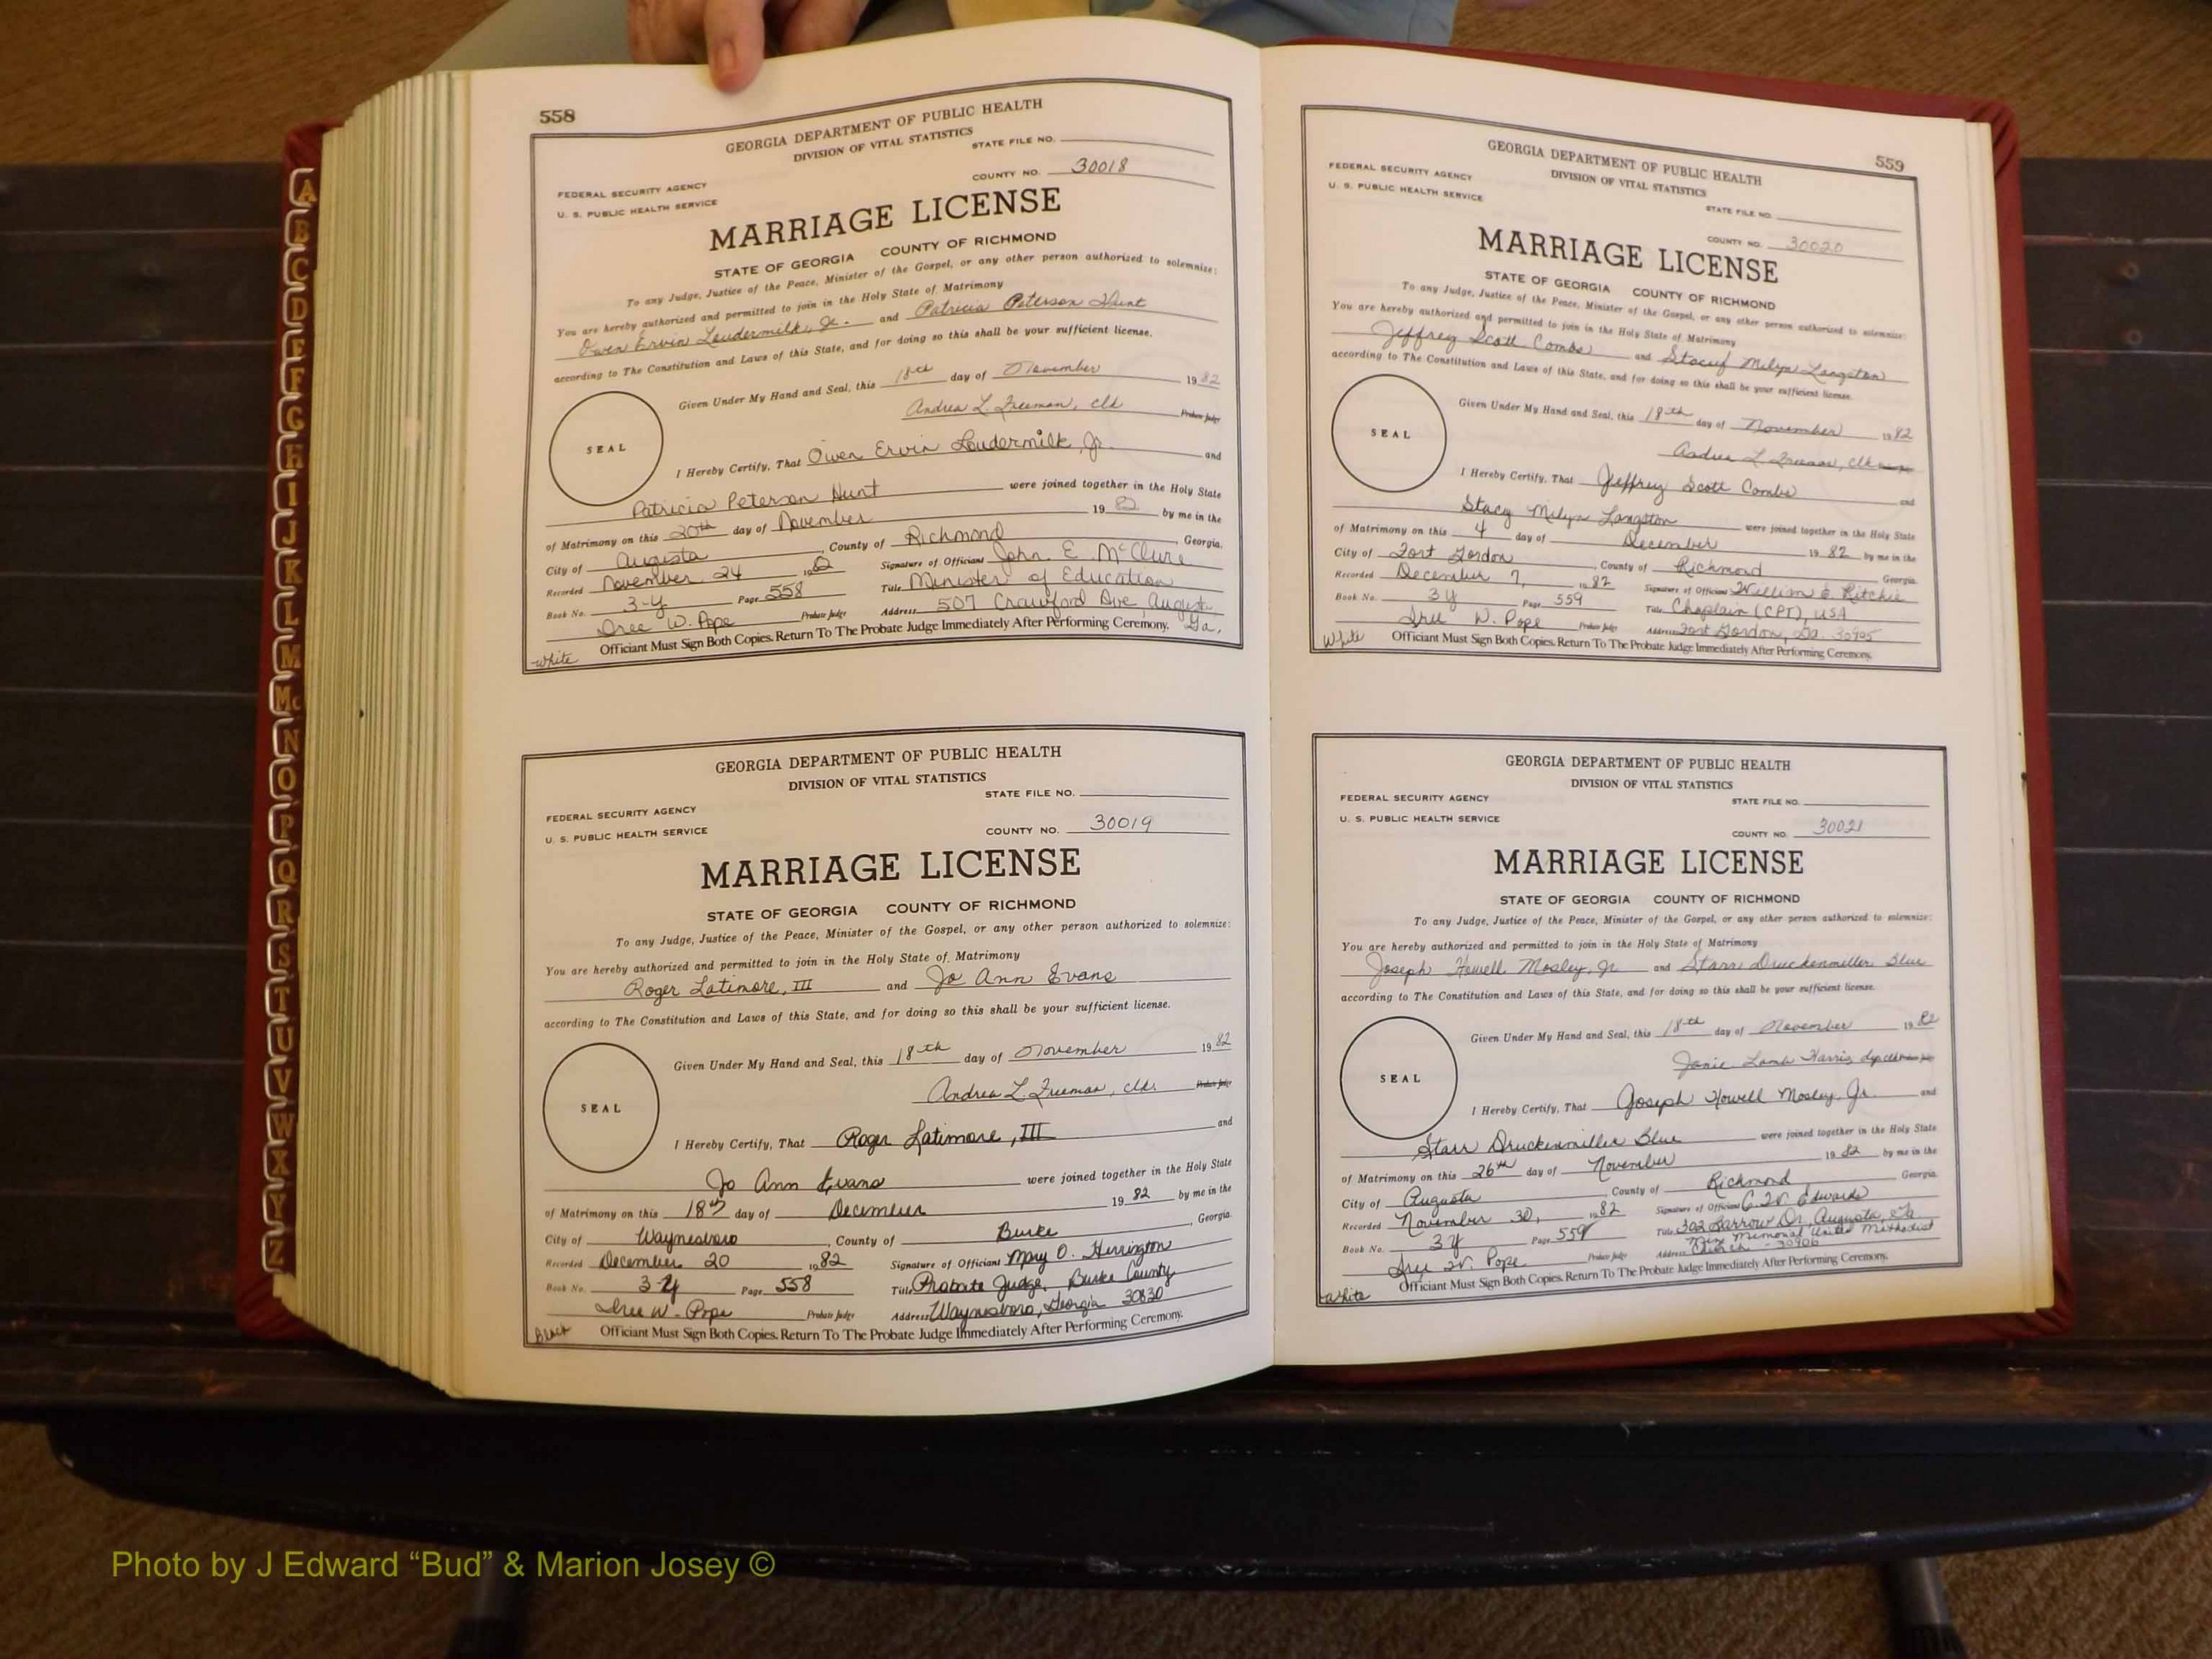 558
GEORGIA DEPARTMENT OF PUBLIC HEALTH
DIVISION OF VITAL STATISTICS
STATE FILE NO.
FEDERAL SECURITY AGENCY
COUNTY NO. 30018
U. S. PUBLIC HEALTH SERVICE
MARRIAGE LICENSE
STATE OF GEORGIA COUNTY OF RICHMOND
To any Judge, Justice of the Peace, Minister of the Gospel, or any other person authorized to solemnize:
You are hereby authorized and permitted to join in the Holy State of Matrimony
Owen Ervin Loudermilk, Jr. and Patricia Peterson Hunt
according to The Constitution and Laws of this State, and for doing so this shall be your sufficient license.
Given Under My Hand and Seal, this 18th day of November 1982
Andrea L. Freeman, clk Probate Judge
SEAL
I Hereby Certify, That Owen Ervin Loudermilk, Jr. and
Patricia Peterson Hunt were joined together in the Holy State
of Matrimony on this 20th day of November 1982 by me in the
City of Augusta, County of Richmond, Georgia.
Recorded November 24 1982 Signature of Official John E. McClure
Book No. 3-Y Page 558 Title Minister of Education
Dree W. Pope Probate Judge Address 507 Crawford Ave, Augusta Ga,
Officiant Must Sign Both Copies. Return To The Probate Judge Immediately After Performing Ceremony.
White
GEORGIA DEPARTMENT OF PUBLIC HEALTH
DIVISION OF VITAL STATISTICS
STATE FILE NO.
FEDERAL SECURITY AGENCY
U. S. PUBLIC HEALTH SERVICE
COUNTY NO. 30019
MARRIAGE LICENSE
STATE OF GEORGIA COUNTY OF RICHMOND
To any Judge, Justice of the Peace, Minister of the Gospel, or any other person authorized to solemnize:
You are hereby authorized and permitted to join in the Holy State of Matrimony
Roger Latimore, III and Jo Ann Evans
according to The Constitution and Laws of this State, and for doing so this shall be your sufficient license.
Given Under My Hand and Seal, this 18th day of November 1982
Andrea L. Freeman, clk. Probate Judge
SEAL
I Hereby Certify, That Roger Latimore, III and
Jo Ann Evans were joined together in the Holy State
of Matrimony on this 18th day of December 1982 by me in the
City of Waynesboro, County of Burke, Georgia.
Recorded December 20 1982 Signature of Official Mary O. Herrington
Book No. 3-Y Page 558 Title Probate Judge, Burke County
Dree W. Pope Probate Judge Address Waynesboro, Georgia 30830
Officiant Must Sign Both Copies. Return To The Probate Judge Immediately After Performing Ceremony.
Black
559
GEORGIA DEPARTMENT OF PUBLIC HEALTH
DIVISION OF VITAL STATISTICS
FEDERAL SECURITY AGENCY
U. S. PUBLIC HEALTH SERVICE
STATE FILE NO.
COUNTY NO. 30020
MARRIAGE LICENSE
STATE OF GEORGIA COUNTY OF RICHMOND
To any Judge, Justice of the Peace, Minister of the Gospel, or any other person authorized to solemnize:
You are hereby authorized and permitted to join in the Holy State of Matrimony
Jeffrey Scott Combs and Stacy Milyn Langston
according to The Constitution and Laws of this State, and for doing so this shall be your sufficient license.
Given Under My Hand and Seal, this 18th day of November 1982
Andrea L Freeman, clk
SEAL
I Hereby Certify, That Jeffrey Scott Combs and
Stacy Milyn Langston were joined together in the Holy State
of Matrimony on this 4 day of December 1982 by me in the
City of Fort Gordon, County of Richmond Georgia.
Recorded December 7, 1982 Signature of Official William E. Ritchie
Book No. 3Y Page 559 Title Chaplain (CPT), USA
Dree W. Pope Probate Judge Address Fort Gordon, Ga. 30905
White
Officiant Must Sign Both Copies. Return To The Probate Judge Immediately After Performing Ceremony.
GEORGIA DEPARTMENT OF PUBLIC HEALTH
DIVISION OF VITAL STATISTICS
FEDERAL SECURITY AGENCY
STATE FILE NO.
U. S. PUBLIC HEALTH SERVICE
COUNTY NO. 30021
MARRIAGE LICENSE
STATE OF GEORGIA COUNTY OF RICHMOND
To any Judge, Justice of the Peace, Minister of the Gospel, or any other person authorized to solemnize:
You are hereby authorized and permitted to join in the Holy State of Matrimony
Joseph Howell Mosley, Jr. and Starr Druckenmiller Blue
according to The Constitution and Laws of this State, and for doing so this shall be your sufficient license.
Given Under My Hand and Seal, this 18th day of November 1982
Janie Lamb Harris, dep clk Probate Judge
SEAL
I Hereby Certify, That Joseph Howell Mosley, Jr. and
Starr Druckenmiller Blue were joined together in the Holy State
of Matrimony on this 26th day of November 1982 by me in the
City of Augusta, County of Richmond, Georgia.
Recorded November 30, 1982 Signature of Official C. W. Edwards
Book No. 3Y Page 559 Title 302 Barrow Dr., Augusta, Ga
Mize Memorial United Methodist
Dree W. Pope Probate Judge Address Church - 30906
Officiant Must Sign Both Copies. Return To The Probate Judge Immediately After Performing Ceremony.
White
A
B
C
D
E
F
G
H
I
J
K
L
M
Mc
N
O
P
Q
R
S
T
U
V
W
X
Y
Z
Photo by J Edward “Bud” & Marion Josey ©